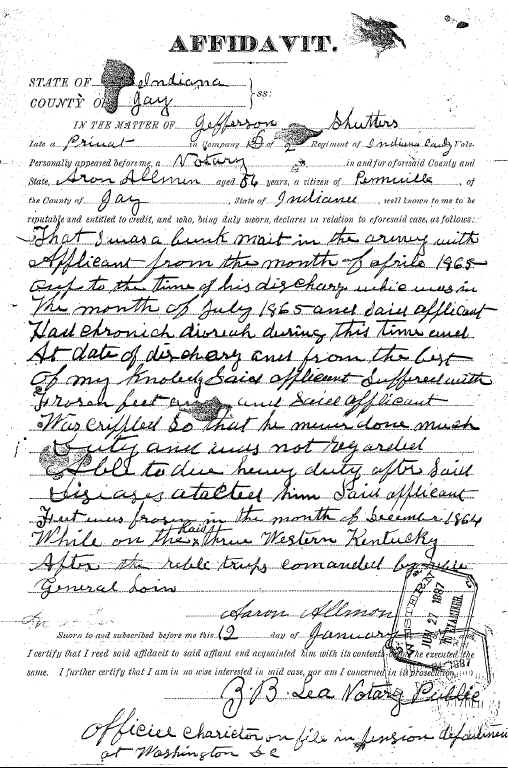 AFFIDAVIT.
STATE OF Indiana
COUNTY OF Jay } ss:
IN THE MATTER OF Jefferson Shutters
late a Privat in Company of 2 Regiment of Indiana Cavly Vols.
Personally appeared before me, a Notary in and for aforesaid County and
State, Aron Allmon aged 56 years, a citizen of Pennville, of
the County of Jay, State of Indiana, well known to me to be
reputable and entitled to credit, and who, being duly sworn, declares in relation to aforesaid case, as follows:
That I was a bunk mait in the army with
Applicant from the month of aprie 1865
up to the time of his discharg which was in
the month of July 1865 and Said applicant
Had chronich dioreah during this time and
At date of discharg and from the best
of my Knoledg Said applicant Suffered with
Frosen feet and Said applicant
Was crippled So that he never done much
Duty and was not regarded
Able to due hevy duty after Said
Diseases atacted him Said applicant
Feet was frosen in the month of December 1864
While on the Raid threw Western Kentucky
After the reble trups comanded by
General Loin
Aaron Allmon
Sworn to and subscribed before me this 12 day of January
I certify that I reed said affidavit to said affiant and acquainted him with its contents before he executed the
same. I further certify that I am in no wise interested in said case, nor am I concerned in its prosecution.
B. Lea Notary Public
WESTERN
JUN 27 1887
EXAMINER
1887
Officiel charicter on file in pension department
at Washington DC